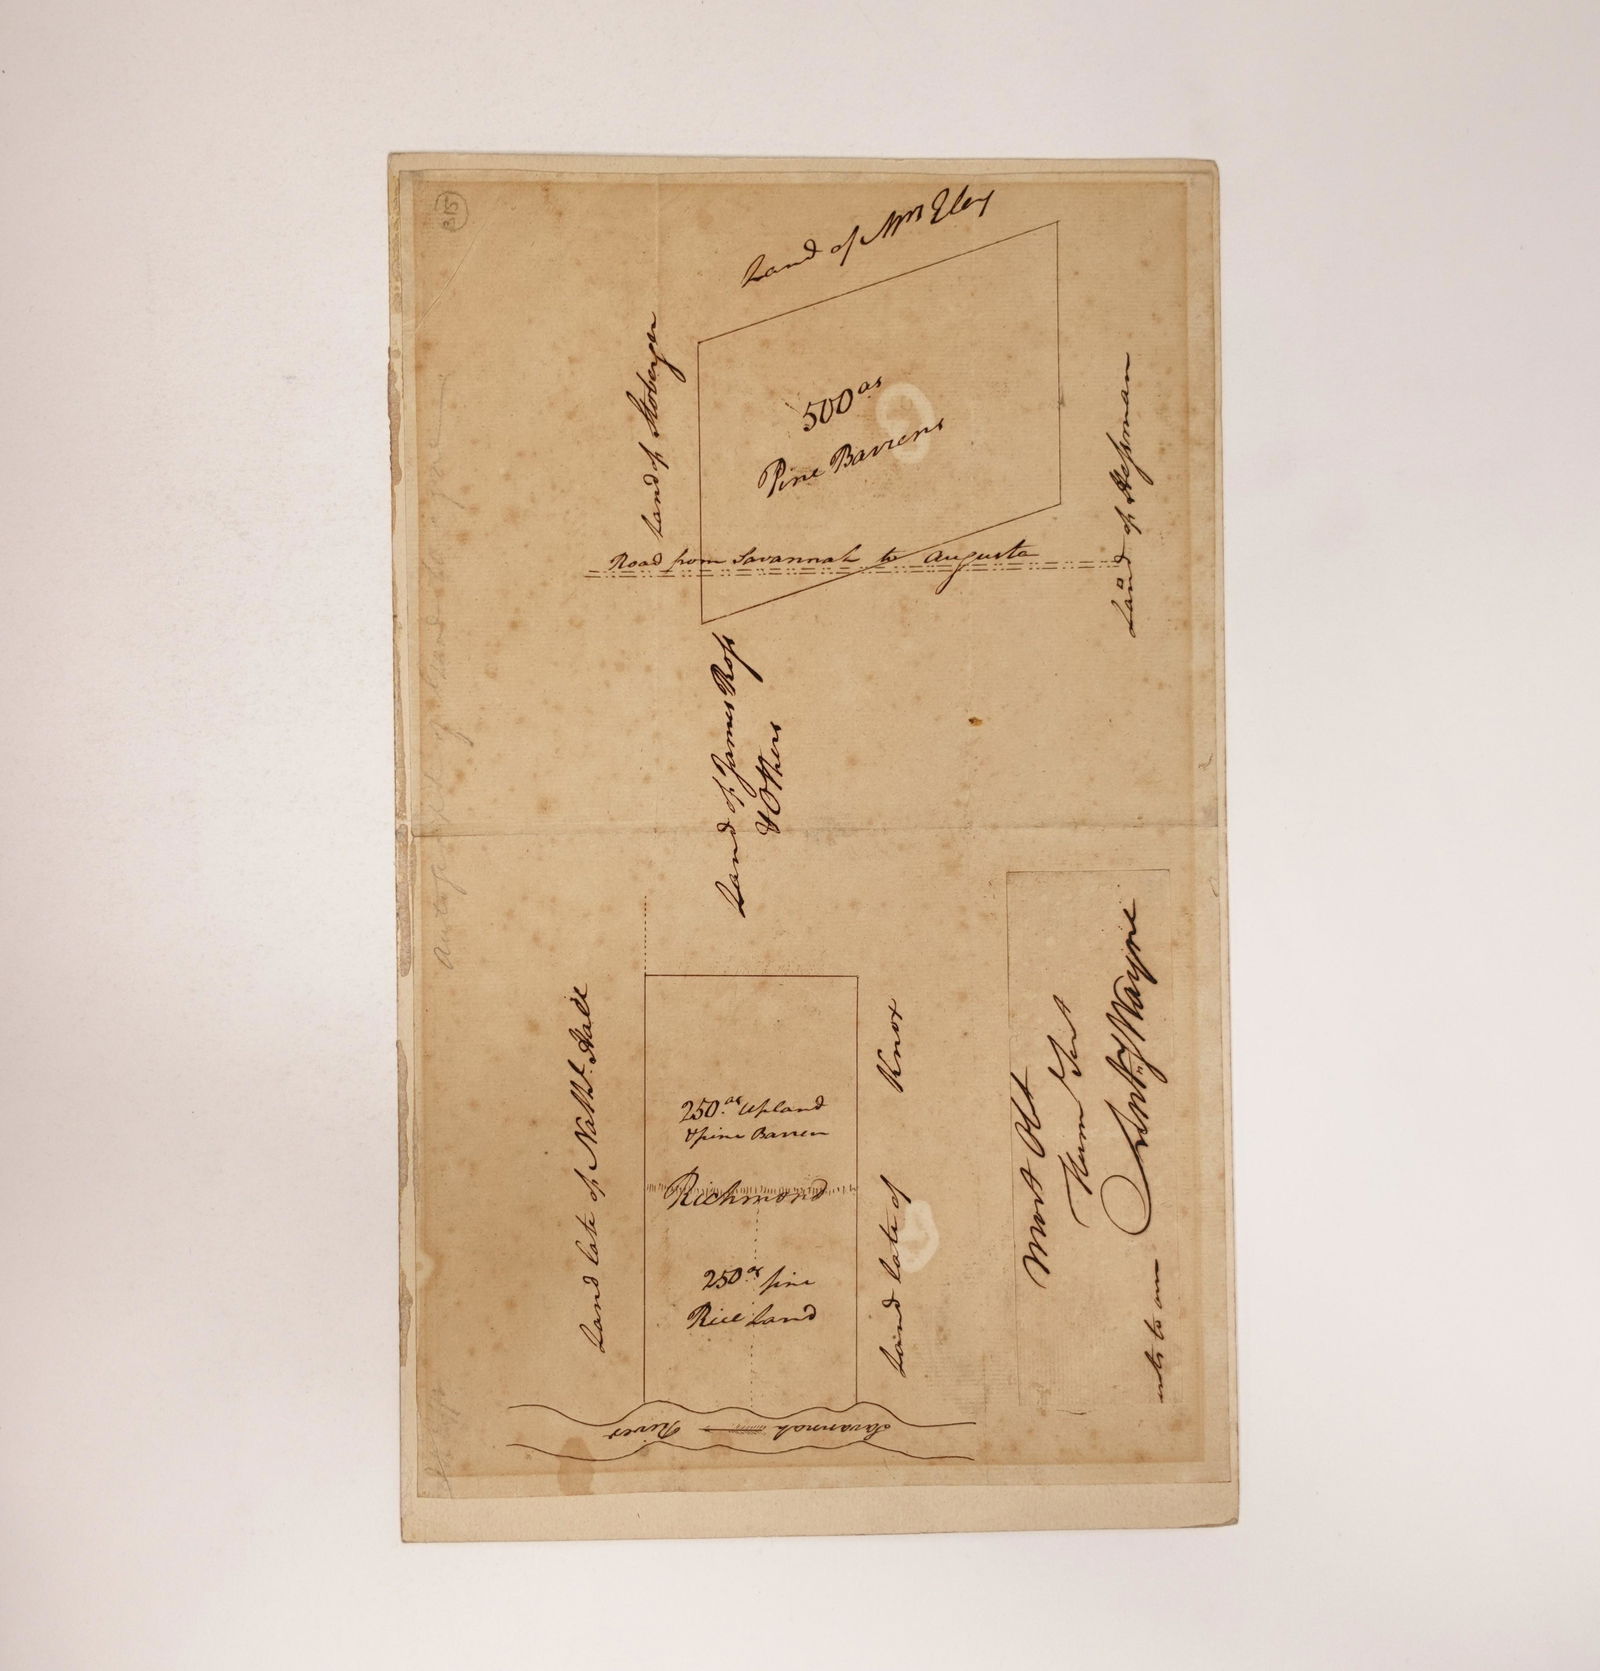 315
Land of Mrs Eley
Land of Stobergen
500 as
Pine Barrens
Land of Hessman
Road from Savannah to Augusta
Land of James Ross
& Others
Land late of Nathl. Hall
250 as upland
& pine Barren
Richmond
250 as fine
Rice Land
Land late of Knox
Savannah River
Most Obt
Hum Sert
Anty Wayne